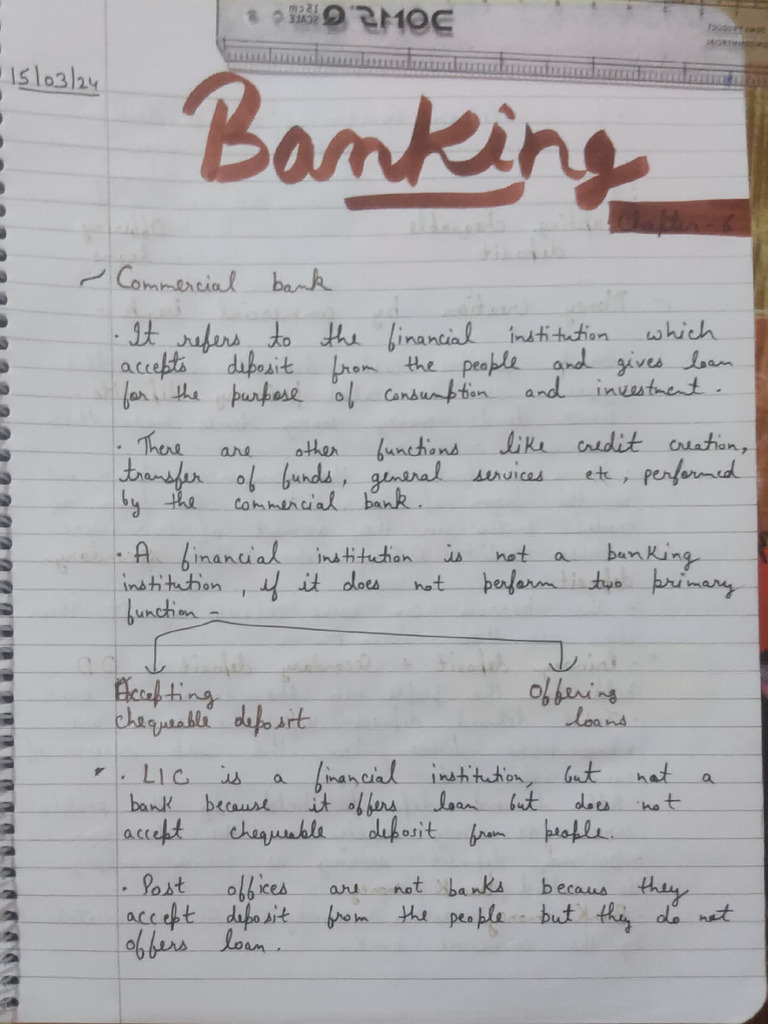 15cm
SCALE
15/03/24
Banking
Chapter - 6
Commercial bank
· It refers to the financial institution which
accepts deposit from the people and gives loan
for the purpose of consumption and investment.
· There are other functions like credit creation,
transfer of funds, general services etc, performed
by the commercial bank.
· A financial institution is not a banking
institution, if it does not perform two primary
function -
Accepting
chequeable deposit
Offering
loans
· LIC is a financial institution, but not a
bank because it offers loan but does not
accept chequeable deposit from people.
· Post offices are not banks becaus they
accept deposit from the people but they do not
offers loan.